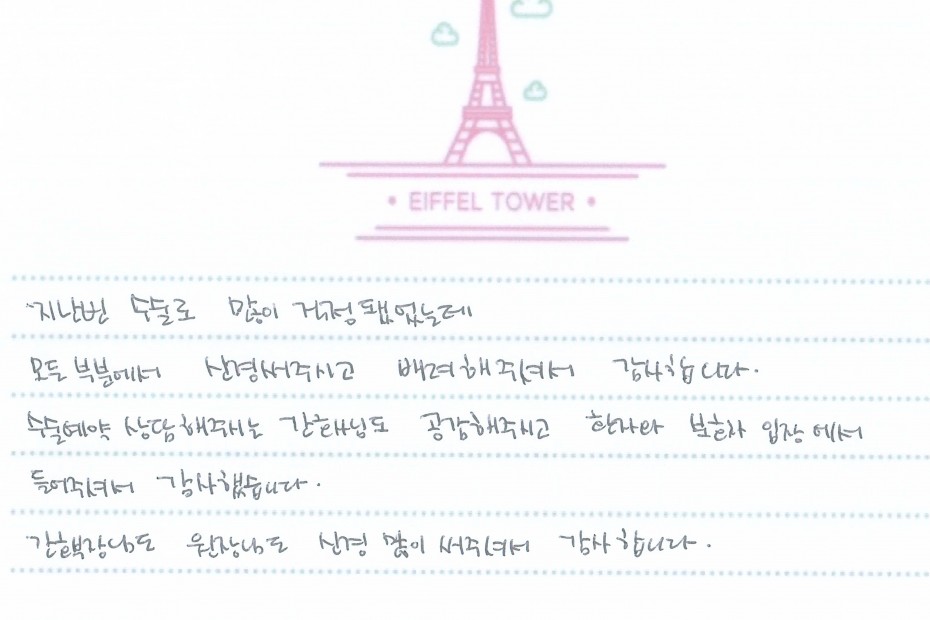 • EIFFEL TOWER •
지난번 수술로 많이 걱정됐었는데
모든 부분에서 신경써주시고 배려해주셔서 감사합니다.
수술예약 상담해주시는 간호사님도 공감해주시고 환자와 보호자 입장에서
들어주셔서 감사했습니다.
간호부장님도 원장님도 신경 많이 써주셔서 감사합니다.